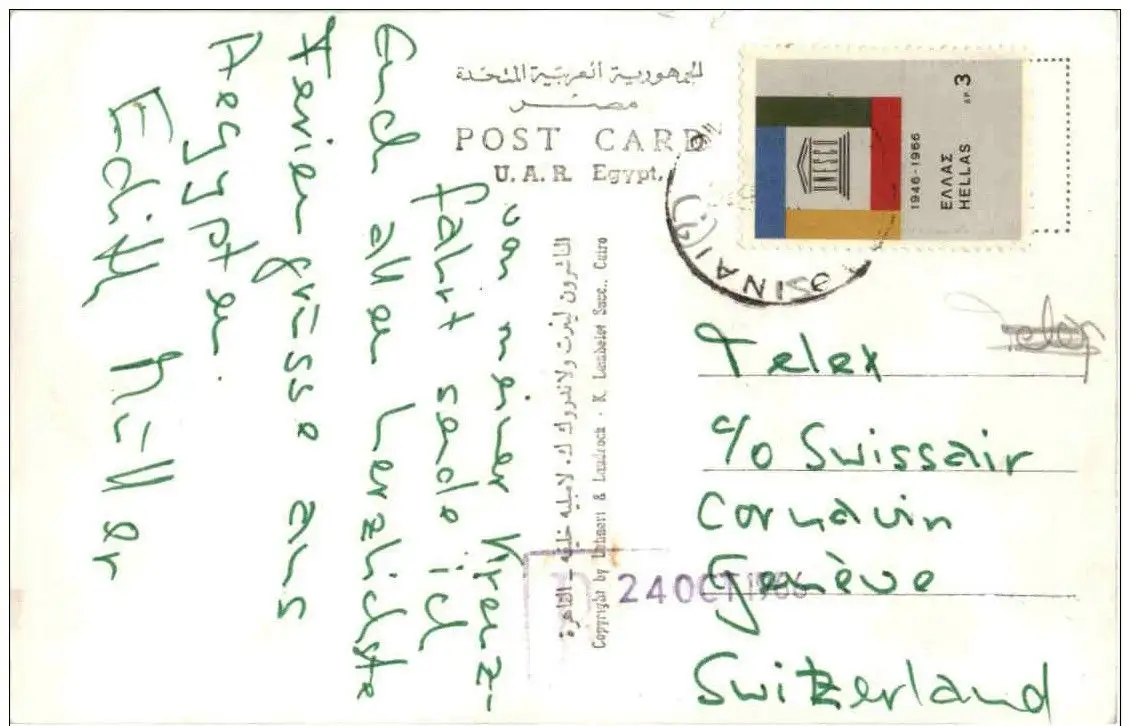 الجمهورية العربية المتحدة
مصر
POST CARD
U. A. R. Egypt.
von meiner Kreuz-
fahrt sende ich
Euch allen herzlichste
Feriengrüsse aus
Aegypten.
Edith Müller
لاهنرت ولاندروك ك. لامبليه خليفته - القاهرة
Copyright by Lehnert & Landrock - K. Lambelet Succ., Cairo
UNESCO
1946-1966
ΕΛΛΑΣ
HELLAS
ΔΡ. 3
SINAI
24 OCT 1966
Telex
Telex
c/o Swissair
Cornavin
Genève
Switzerland